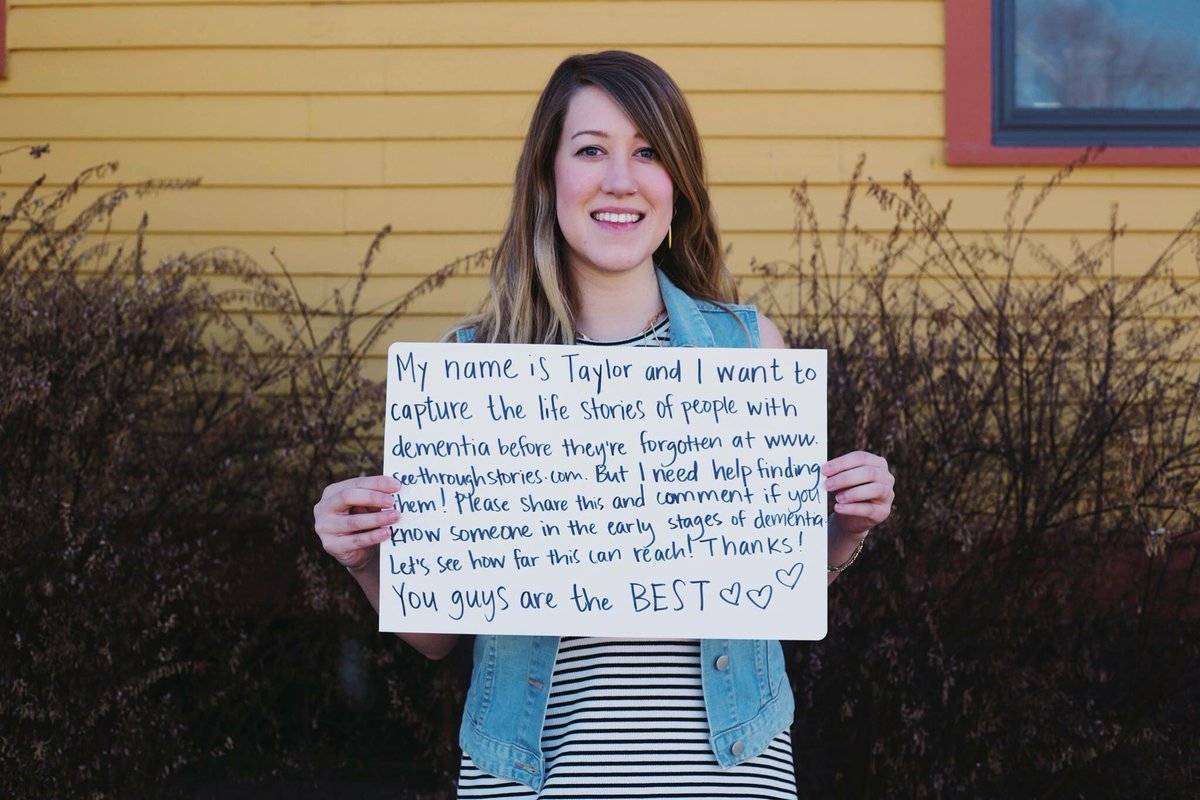 My name is Taylor and I want to
capture the life stories of people with
dementia before they're forgotten at www.
seethroughstories.com. But I need help finding
them! Please share this and comment if you
know someone in the early stages of dementia.
Let's see how far this can reach! Thanks!
You guys are the BEST